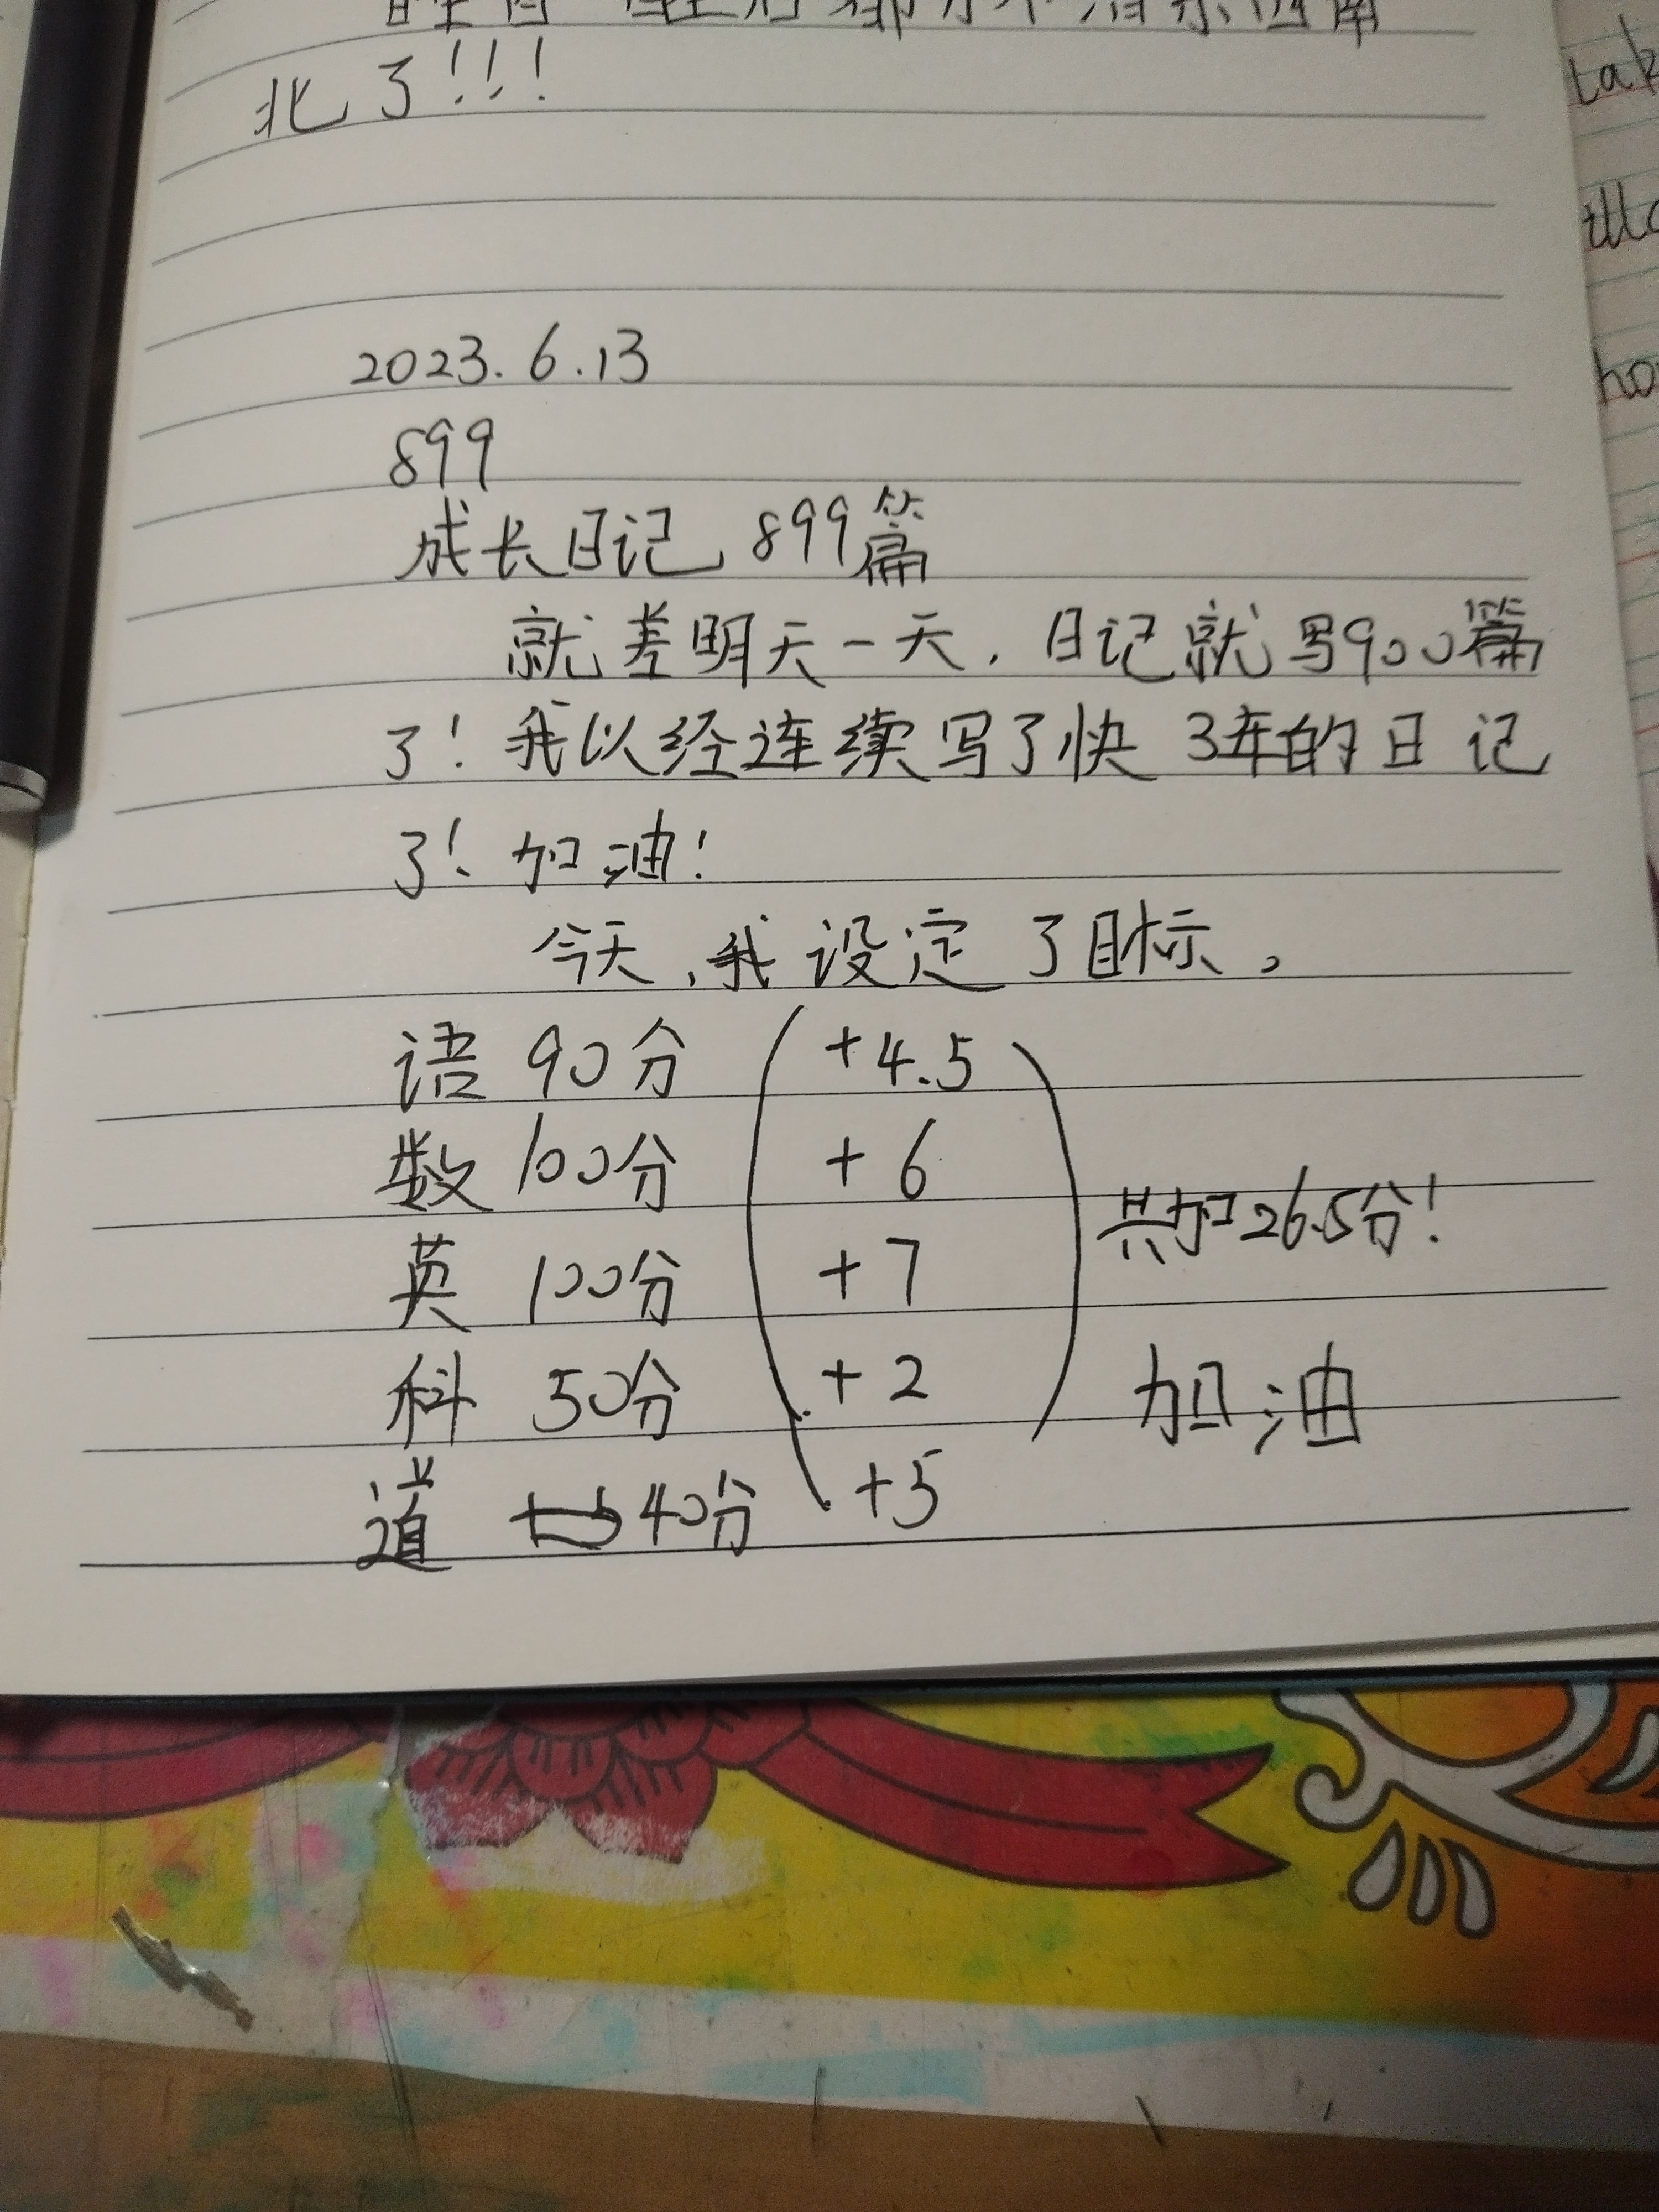 北了!!!
2023.6.13
899
成长日记 899篇
就差明天一天,日记就写900篇
了!我以经连续写了快3年的日记
了!加油!
今天,我设定了目标。
语 90分 ( +4.5 )
数 100分 +6
共加26.5分!
英 100分 +7
科 50分 +2
加油
道 40分 +5
tak
ho